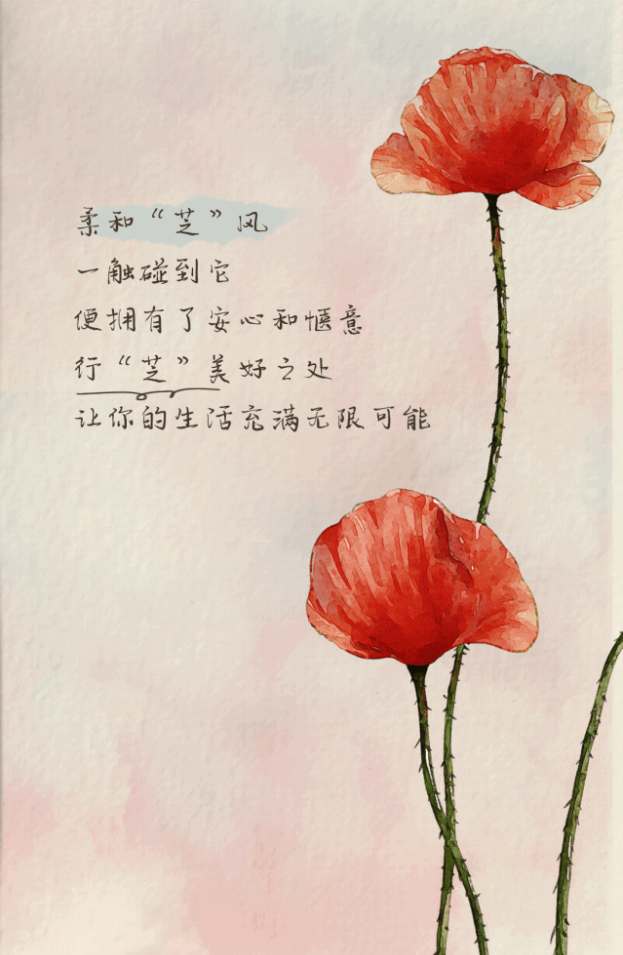 柔和“芝”风
一触碰到它
便拥有了安心和惬意
行“芝”美好之处
让你的生活充满无限可能